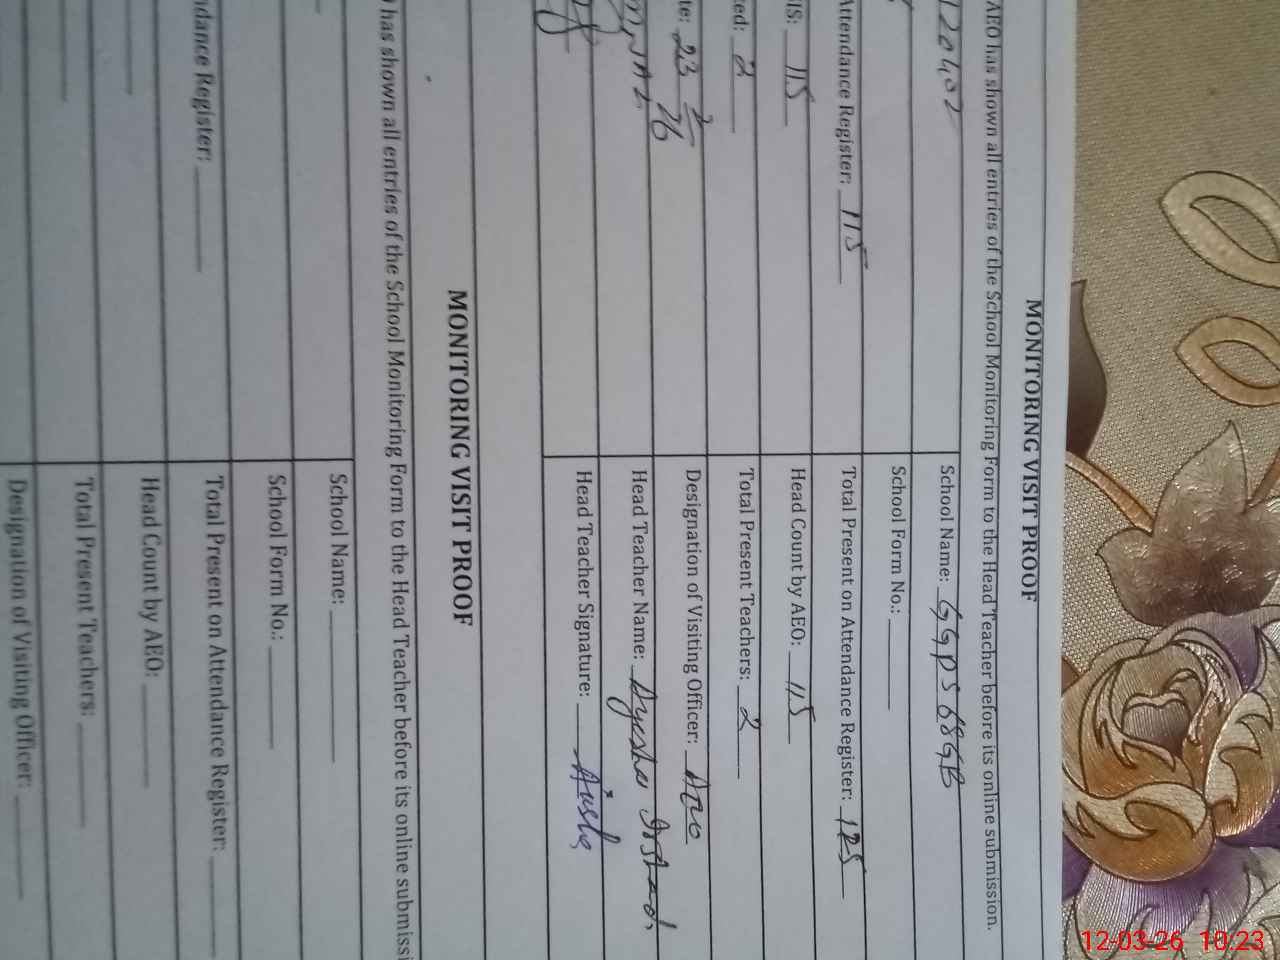 MONITORING VISIT PROOF
AEO has shown all entries of the School Monitoring Form to the Head Teacher before its online submission.
School Name: GGPS 68GB
School Form No.:
Attendance Register: 115 Total Present on Attendance Register: 125
SIS: 115 Head Count by AEO: 115
2 Total Present Teachers: 2
23 2/26 Designation of Visiting Officer: AEO
Head Teacher Name: Ayesha Irshad
Head Teacher Signature: Aisha
MONITORING VISIT PROOF
has shown all entries of the School Monitoring Form to the Head Teacher before its online submissi
School Name:
School Form No.:
ndance Register: Total Present on Attendance Register:
Head Count by AEO:
Total Present Teachers:
Designation of Visiting Officer:
12-03-26 10:23